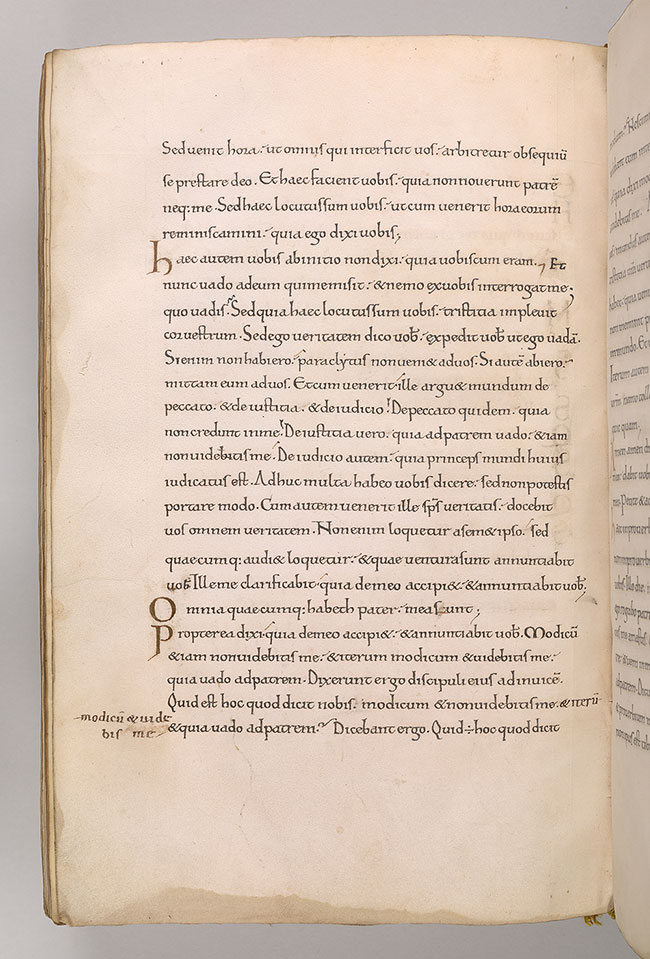 Sed uenit hora. ut omnis qui interficit uos. arbitretur obsequiū
se prestare deo. Et haec facient uobis. quia non nouerunt patrē
neq; me. Sed haec locutus sum uobis. ut cum uenerit hora eorum
reminiscamini. quia ego dixi uobis;
haec autem uobis ab initio non dixi. quia uobiscum eram. Et
nunc uado ad eum qui me misit. & nemo ex uobis interrogat me;
quo uadis. Sed quia haec locutus sum uobis. tristitia impleuit
cor uestrum. Sed ego veritatem dico uob̄. expedit uob̄ ut ego uadā.
Si enim non habiero. paraclytus non ueni& ad uos. Si autē abiero.
mittam eum ad uos. Et cum uenerit ille argu& mundum de
peccato. & de iustitia. & de iudicio. De peccato quidem. quia
non credunt in me. De iustitia uero. quia ad patrem uado. & iam
non uidebitis me. De iudicio autem. quia princeps mundi huius
iudicatus est. Adhuc multa habeo uobis dicere. sed non potestis
portare modo. Cum autem uenerit ille sp̄s ueritatis. docebit
uos omnem ueritatem. Non enim loquetur a sem&ipso. sed
quaecumq; audi& loquetur. & quae uentura sunt annuntiabit
uob̄. Ille me clarificabit. quia de meo accipi&. & annuntiabit uob̄.
Omnia quaecumq; hab& pater. mea sunt;
Propterea dixi. quia de meo accipi&. & annuntiabit uob̄. Modicū
& iam non uidebitis me. & iterum modicum & uidebitis me.
quia uado ad patrem. Dixerunt ergo discipuli eius ad inuicē.
Quid est hoc quod dicit nobis. modicum & non uidebitis me. & iterū
modicū & uide
bis me
& quia uado ad patrem. Dicebant ergo. Quid ÷ hoc quod dicit